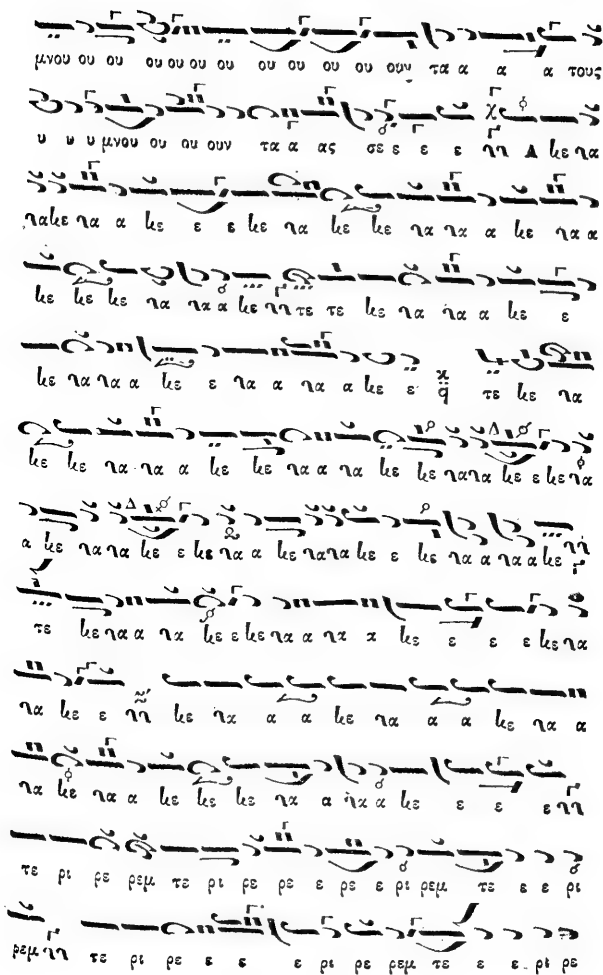 μνου ου ου ου ου ου ου ου ου ου ου ουν τα α α α τους
υ υ υ μνου ου ου ουν τα α ας σε ε ε ε λε να
ναλε να α λε ε ε λε να λε λε να να α λε να α
λε λε λε να να α λε τε τε λε να να α λε ε
λε να να α λε ε να α να α λε ε τε λε να
λε λε να να α λε λε να α να λε λε να να λε ε λε να
α λε να να λε ε λε να α λε να να λε ε λε να α να α λε
τε λε να α να λε ε λε να α να α λε ε ε ε λε να
να λε ε λε να α α λε να α α λε να α
να λε να α λε λε λε να α να α λε ε ε ε
τε ρι ρε ρεμ τε ρι ρε ρε ε ρε ε ρι ρεμ τε ε ε ρι
ρεμ τε ρι ρε ε ε ε ρι ρε ρεμ τε ε ε ρι ρε